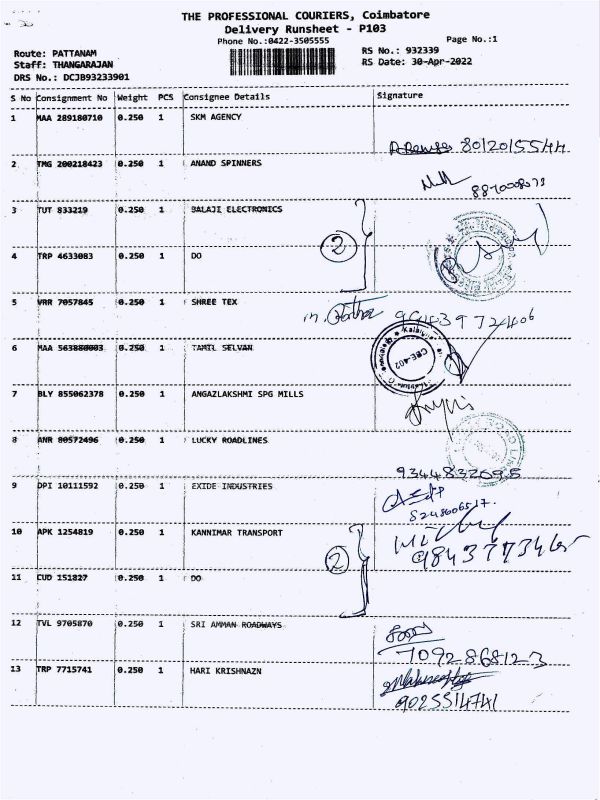 THE PROFESSIONAL COURIERS, Coimbatore
Delivery Runsheet - P103
Phone No.:0422-3505555
Page No.:1
Route: PATTANAM
RS No.: 932339
Staff: THANGARAJAN
RS Date: 30-Apr-2022
DRS No.: DCJB93233901
S No Consignment No Weight PCS Consignee Details Signature
1 MAA 289180710 0.250 1 SKM AGENCY
8012015544
2 TMG 200218423 0.250 1 ANAND SPINNERS
3 TUT 833219 0.250 1 BALAJI ELECTRONICS
2
4 TRP 4633083 0.250 1 DO
5 VRR 7057845 0.250 1 SHREE TEX
6 MAA 563880003 0.250 1 TAMIL SELVAN
CBE-402
7 BLY 855062378 0.250 1 ANGAZLAKSHMI SPG MILLS
8 ANR 80572496 0.250 1 LUCKY ROADLINES
9344832695
9 DPI 10111592 0.250 1 EXIDE INDUSTRIES
8248606517.
10 APK 1254819 0.250 1 KANNIMAR TRANSPORT
2
11 CUD 151827 0.250 1 DO
12 TVL 9705870 0.250 1 SRI AMMAN ROADWAYS
7092868123
13 TRP 7715741 0.250 1 HARI KRISHNAZN
9025514741